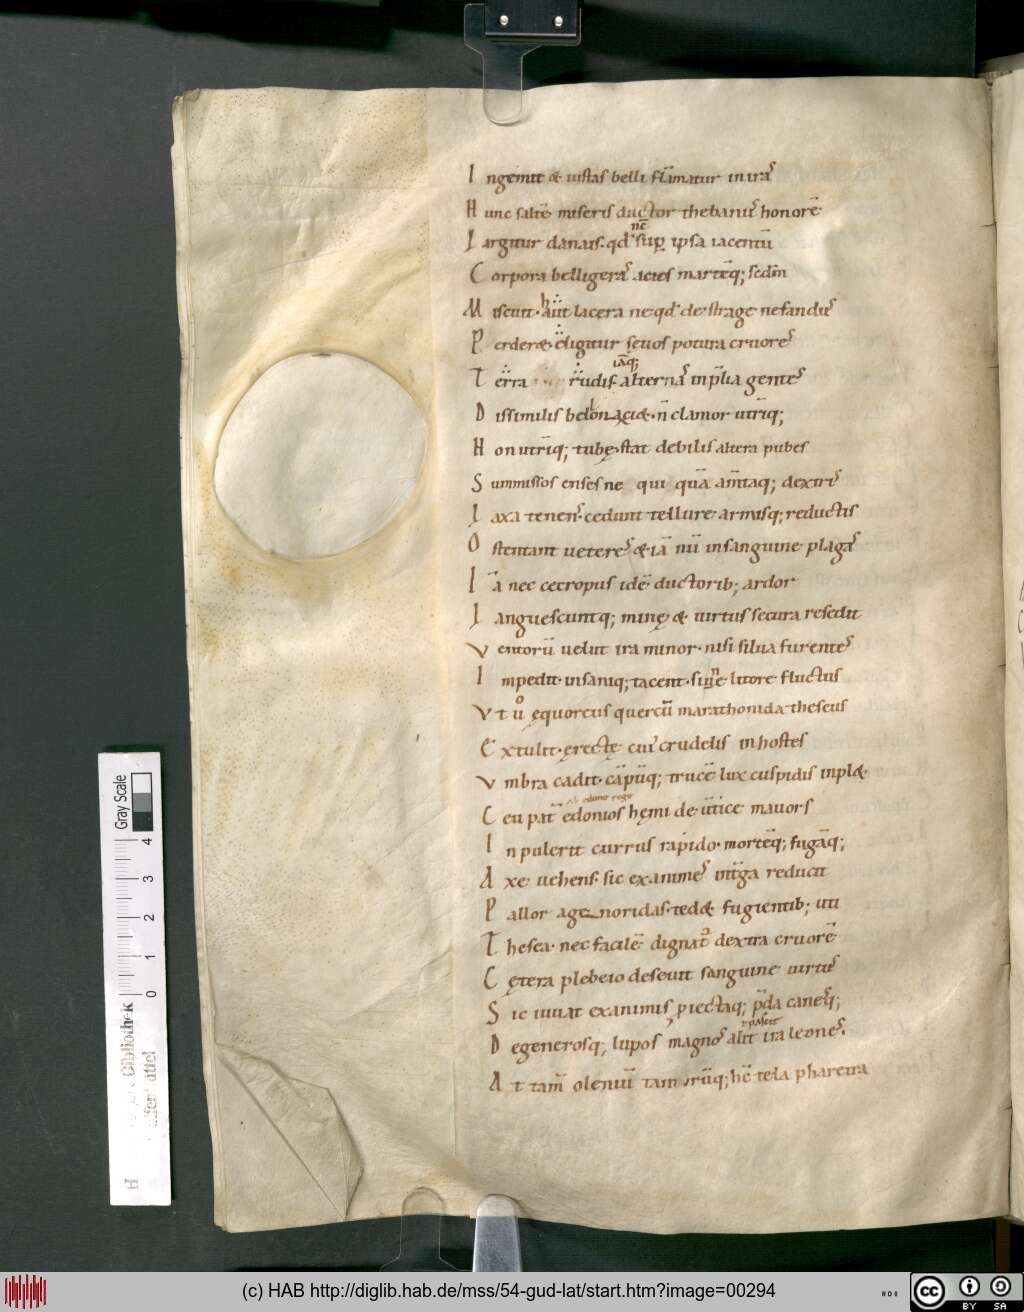 I ngemit & iustas belli flãmatur in iras
H unc saltẽ miseris ductor thebanus honorẽ
L argitur danais. qđ sup ipsa iacentũ
nc̃
C orpora belligeras acies martẽq; sedm̃
M iscuit. haut lacera ne qđ de strage nefandus
P erder&. eligitur sevos potura cruores
T erra rudis alternas in p̃lia gentes
iãq;
D issimilis bellona aci&. ñ clamor utrĩq;
N on utrĩq; tubę. stat debilis altera pubes
S ummissos enses ne qui quã am̃taq; dextris
L axa tenens. cedunt tellure armisq; reductis
O stentant ueteres & iã nũ insanguine plagas
I ã nec cecropiis idẽ ductorib; ardor
L anguescuntq; minę & uirtus secura resedit
V entorũ uelut ira minor. nisi silua furentes
I mpedit. insaniq; tacent. sine litore fluctus
V t ů ęquoreus quercũ marathonida theseus
E xtulit. ęrectę cui crudelis in hostes
V mbra cadit. cãpũq; trucẽ lux cuspidis inpl&
C eu pat̃ edonios hęmi de ũtice mauors
I n pulerit currus rapido. mortẽq; fugãq;
A xe uehens. sic exanimes in t̃ga reducit
P allor agenoridas. ted& fugientib; uti
T hesea. nec facilẽ dignat' dextra cruorẽ
C ętera plebeio deseuit sanguine uirtus
S ic iuuat exanimis p̃iectaq; p̃da canesq;
D egeneresq; lupos magnos alit ira leones.
A t tam̃ oleniũ tam irũq; hĩc tela pharetra
Gray Scale
4
3
2
1
0
(c) HAB http://diglib.hab.de/mss/54-gud-lat/start.htm?image=00294
cc BY SA